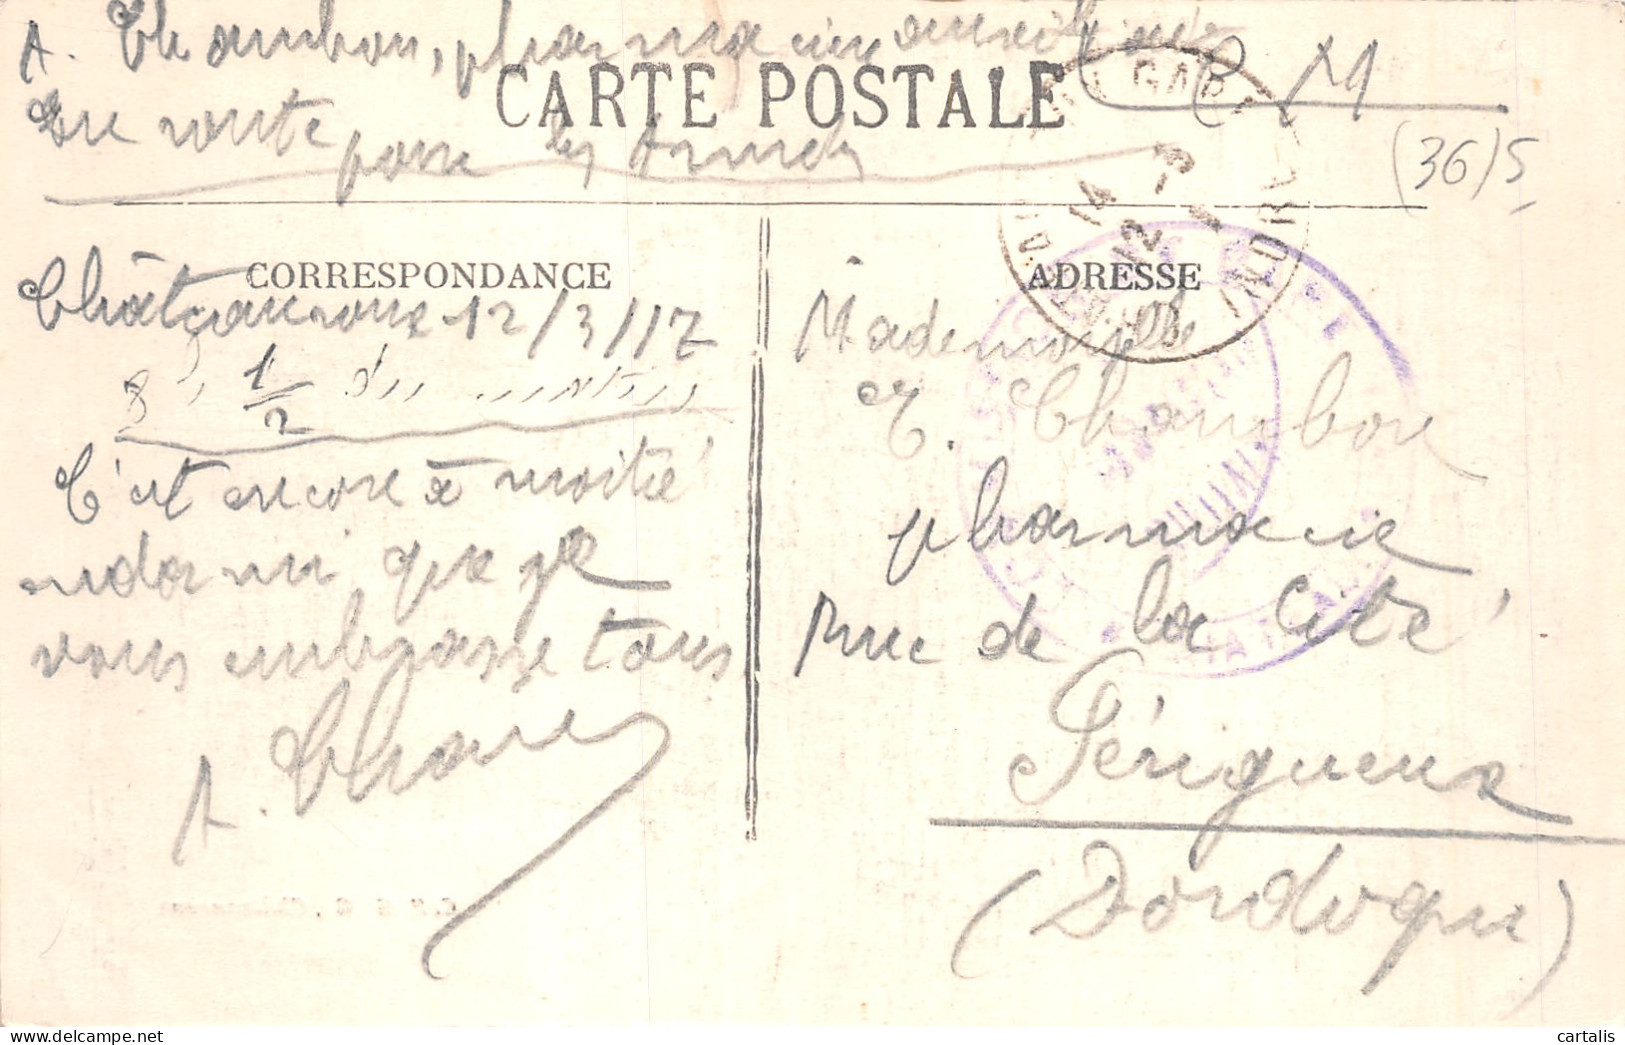 A. Chambon, pharmacien auxiliaire
En route pour les Armées
CARTE POSTALE
F M
(36)5
CORRESPONDANCE
Châteauroux 12/3/17
8 h 1/2 du matin
C'est encore à moitié
endormi que je
vous embrasse tous
A. Cha
ADRESSE
Mademoiselle
E. Chambon
pharmacie
Rue de la Cité
Périgueux
(Dordogne)
GARE
14
12 -3
INDRE
cartalis